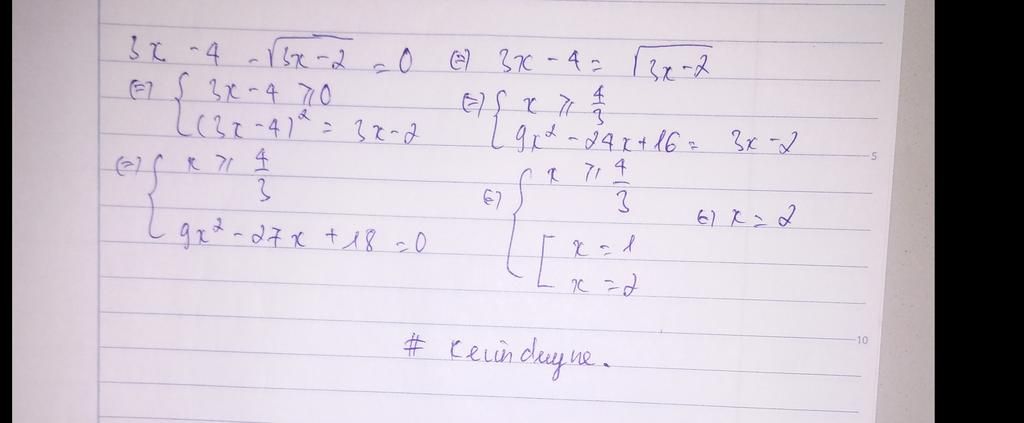 3x - 4 - √(3x-2) = 0 ⇔ 3x - 4 = √(3x-2)
⇔ { 3x - 4 ⩾ 0 ; (3x-4)² = 3x - 2 ⇔ { x ⩾ 4/3 ; 9x² - 24x + 16 = 3x - 2
⇔ { x ⩾ 4/3 ; 9x² - 27x + 18 = 0 ⇔ { x ⩾ 4/3 ; [ x = 1 ; x = 2 ⇔ x = 2
#
5
10